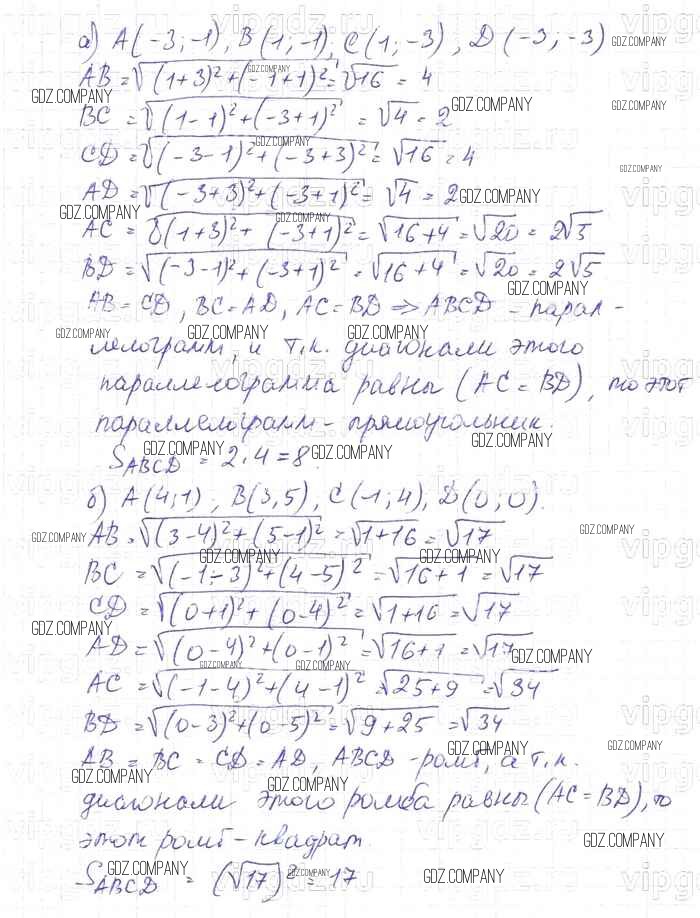 а) A(-3;-1), B(1;-1), C(1;-3), D(-3;-3)
AB = √((1+3)²+(-1+1)²) = √16 = 4
BC = √((1-1)²+(-3+1)²) = √4 = 2
CD = √((-3-1)²+(-3+3)²) = √16 = 4
AD = √((-3+3)²+(-3+1)²) = √4 = 2
AC = √((1+3)²+(-3+1)²) = √(16+4) = √20 = 2√5
BD = √((-3-1)²+(-3+1)²) = √(16+4) = √20 = 2√5
AB=CD, BC=AD, AC=BD ⇒ ABCD - парал-
лелограмм, и т.к. диагонали этого
параллелограмма равны (AC=BD), то этот
параллелограмм - прямоугольник.
S_ABCD = 2·4=8.
б) A(4;1), B(3,5), C(-1;4), D(0;0).
AB = √((3-4)²+(5-1)²) = √(1+16) = √17
BC = √((-1-3)²+(4-5)²) = √(16+1) = √17
CD = √((0+1)²+(0-4)²) = √(1+16) = √17
AD = √((0-4)²+(0-1)²) = √(16+1) = √17
AC = √((-1-4)²+(4-1)²) = √(25+9) = √34
BD = √((0-3)²+(0-5)²) = √(9+25) = √34
AB = BC = CD = AD, ABCD - ромб, а т.к.
диагонали этого ромба равны (AC=BD), то
этот ромб - квадрат.
S_ABCD = (√17)² = 17
GDZ.COMPANY
vipgdz.ru